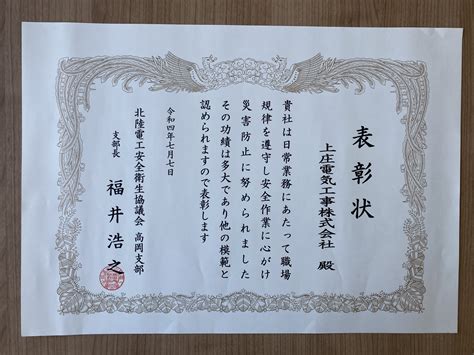 表彰状
上庄電気工事株式会社 殿
貴社は日常業務にあたって職場
規律を遵守し安全作業に心がけ
災害防止に努められました
その功績は多大であり他の模範と
認められますので表彰します
令和四年七月七日
北陸電工安全衛生協議会 高岡支部
支部長 福井浩之